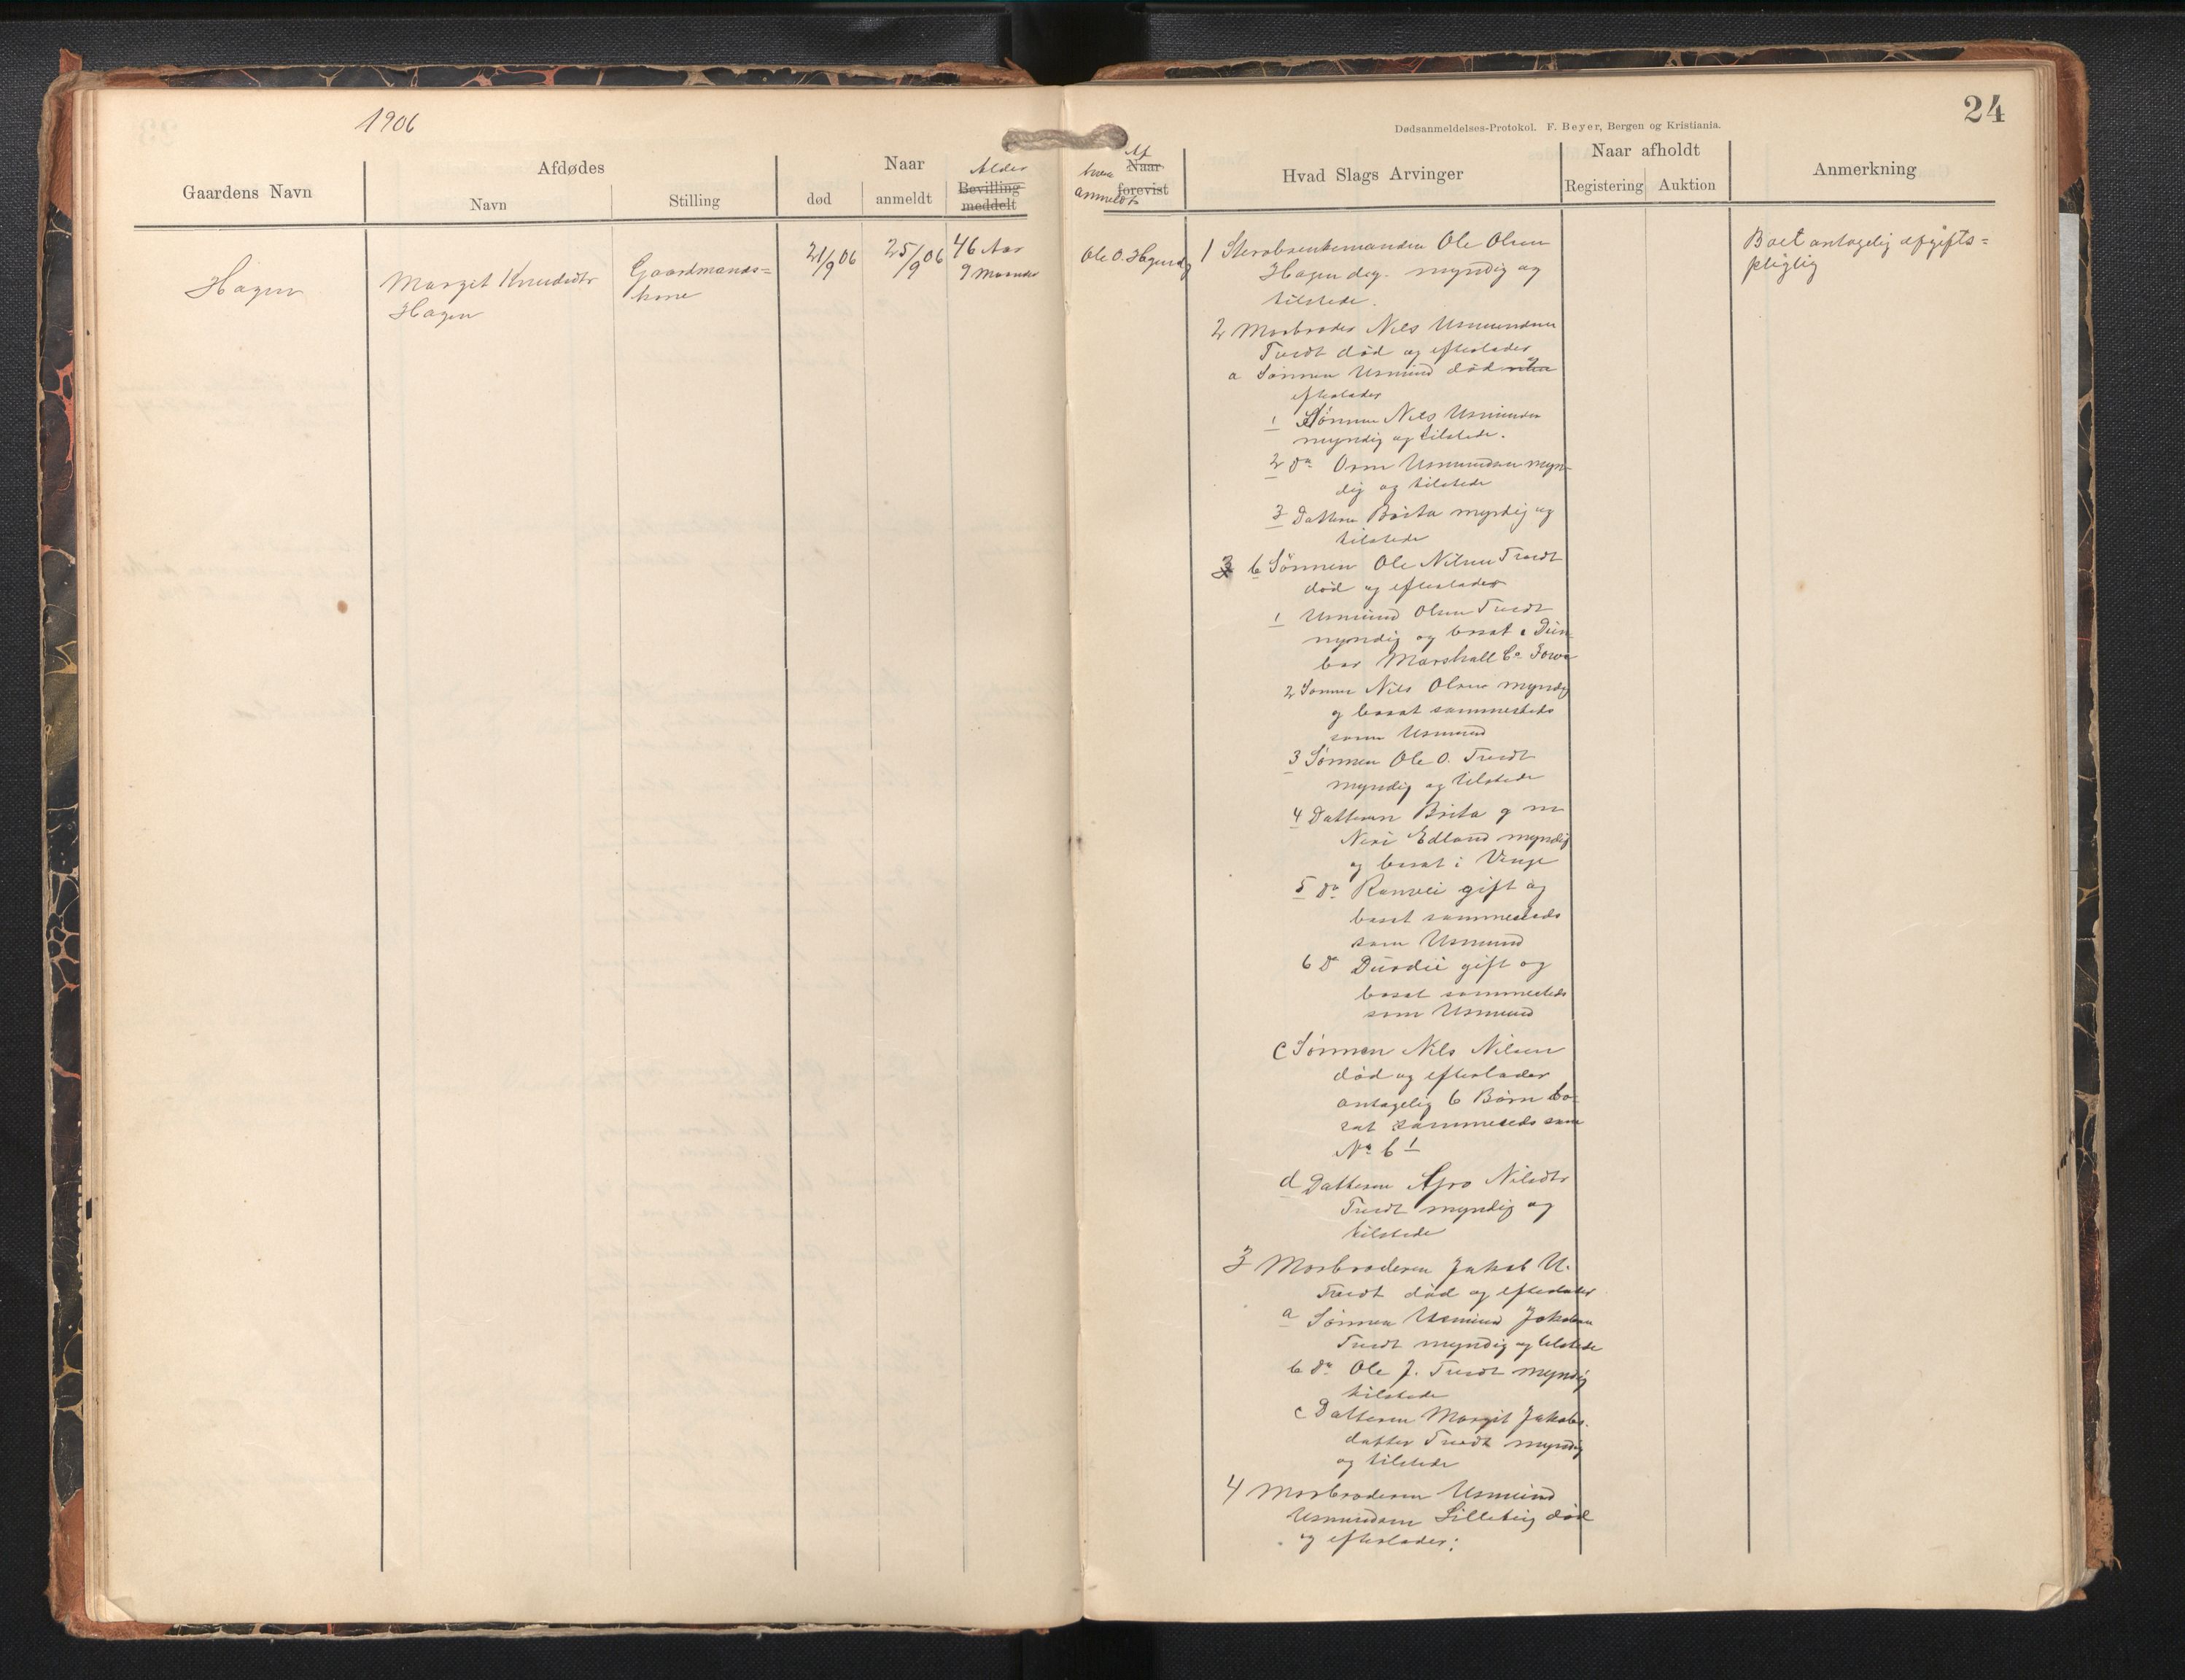 1906
24
Dødsanmeldelses-Protokol. F. Beyer, Bergen og Kristiania.
Gaardens Navn
Afdødes
Navn
Stilling
Naar
død
anmeldt
Alder
Bevilling
meddelt
Af
hvem
Naar
anmeldt
forevist
Hvad Slags Arvinger
Naar afholdt
Registering
Auktion
Anmerkning
Hagen
Marget Knudsdtr
Hagen
Gaardmands=
kone
21/9 06
25/9 06
46 Aar
9 Maander
Ole O. Hagen
1 Sterbsenkemanden Ole Olsen
Hagen myndig og
tilstede.
2 Morbroder Nils Usmundsen
Tvedt død og efterlader
a Sønnen Usmund død og
efterlader
1 Sønnen Nils Usmundsen
myndig og tilstede.
2 do Orm Usmundsen myn-
dig og tilstede
3 Datteren Brita myndig og
tilstede
b Sønnen Ole Nilsen Tvedt
død og efterlader
1 Usmund Olsen Tvedt
myndig og bosat i Dun-
bar Marshall Co Iowa
2 Sønnen Nils Olsen myndig
og bosat sammesteds
som Usmund
3 Sønnen Ole O. Tvedt
myndig og tilstede
4 Datteren Brita g m
Neri Edland myndig
og bosat i Vinje
5 do Ranvei gift og
bosat sammesteds
som Usmund
6 do Durdei gift og
bosat sammesteds
som Usmund
c Sønnen Nils Nilsen
død og efterlader
antagelig 6 Børn bo-
sat sammesteds som
No b 1
d Datteren Apro Nilsdtr
Tvedt myndig og
tilstede
3 Morbroderen Jakob U.
Tvedt død og efterlader
a Sønnen Usmund Jakobsen
Tvedt myndig og tilstede
b do Ole J. Tvedt myndig
tilstede
c Datteren Margit Jakobs.
datter Tvedt myndig
og tilstede
4 Morbroderen Usmund
Usmundsen Lillebuj død
og efterlader:
Boet antagelig afgifts=
pligtig